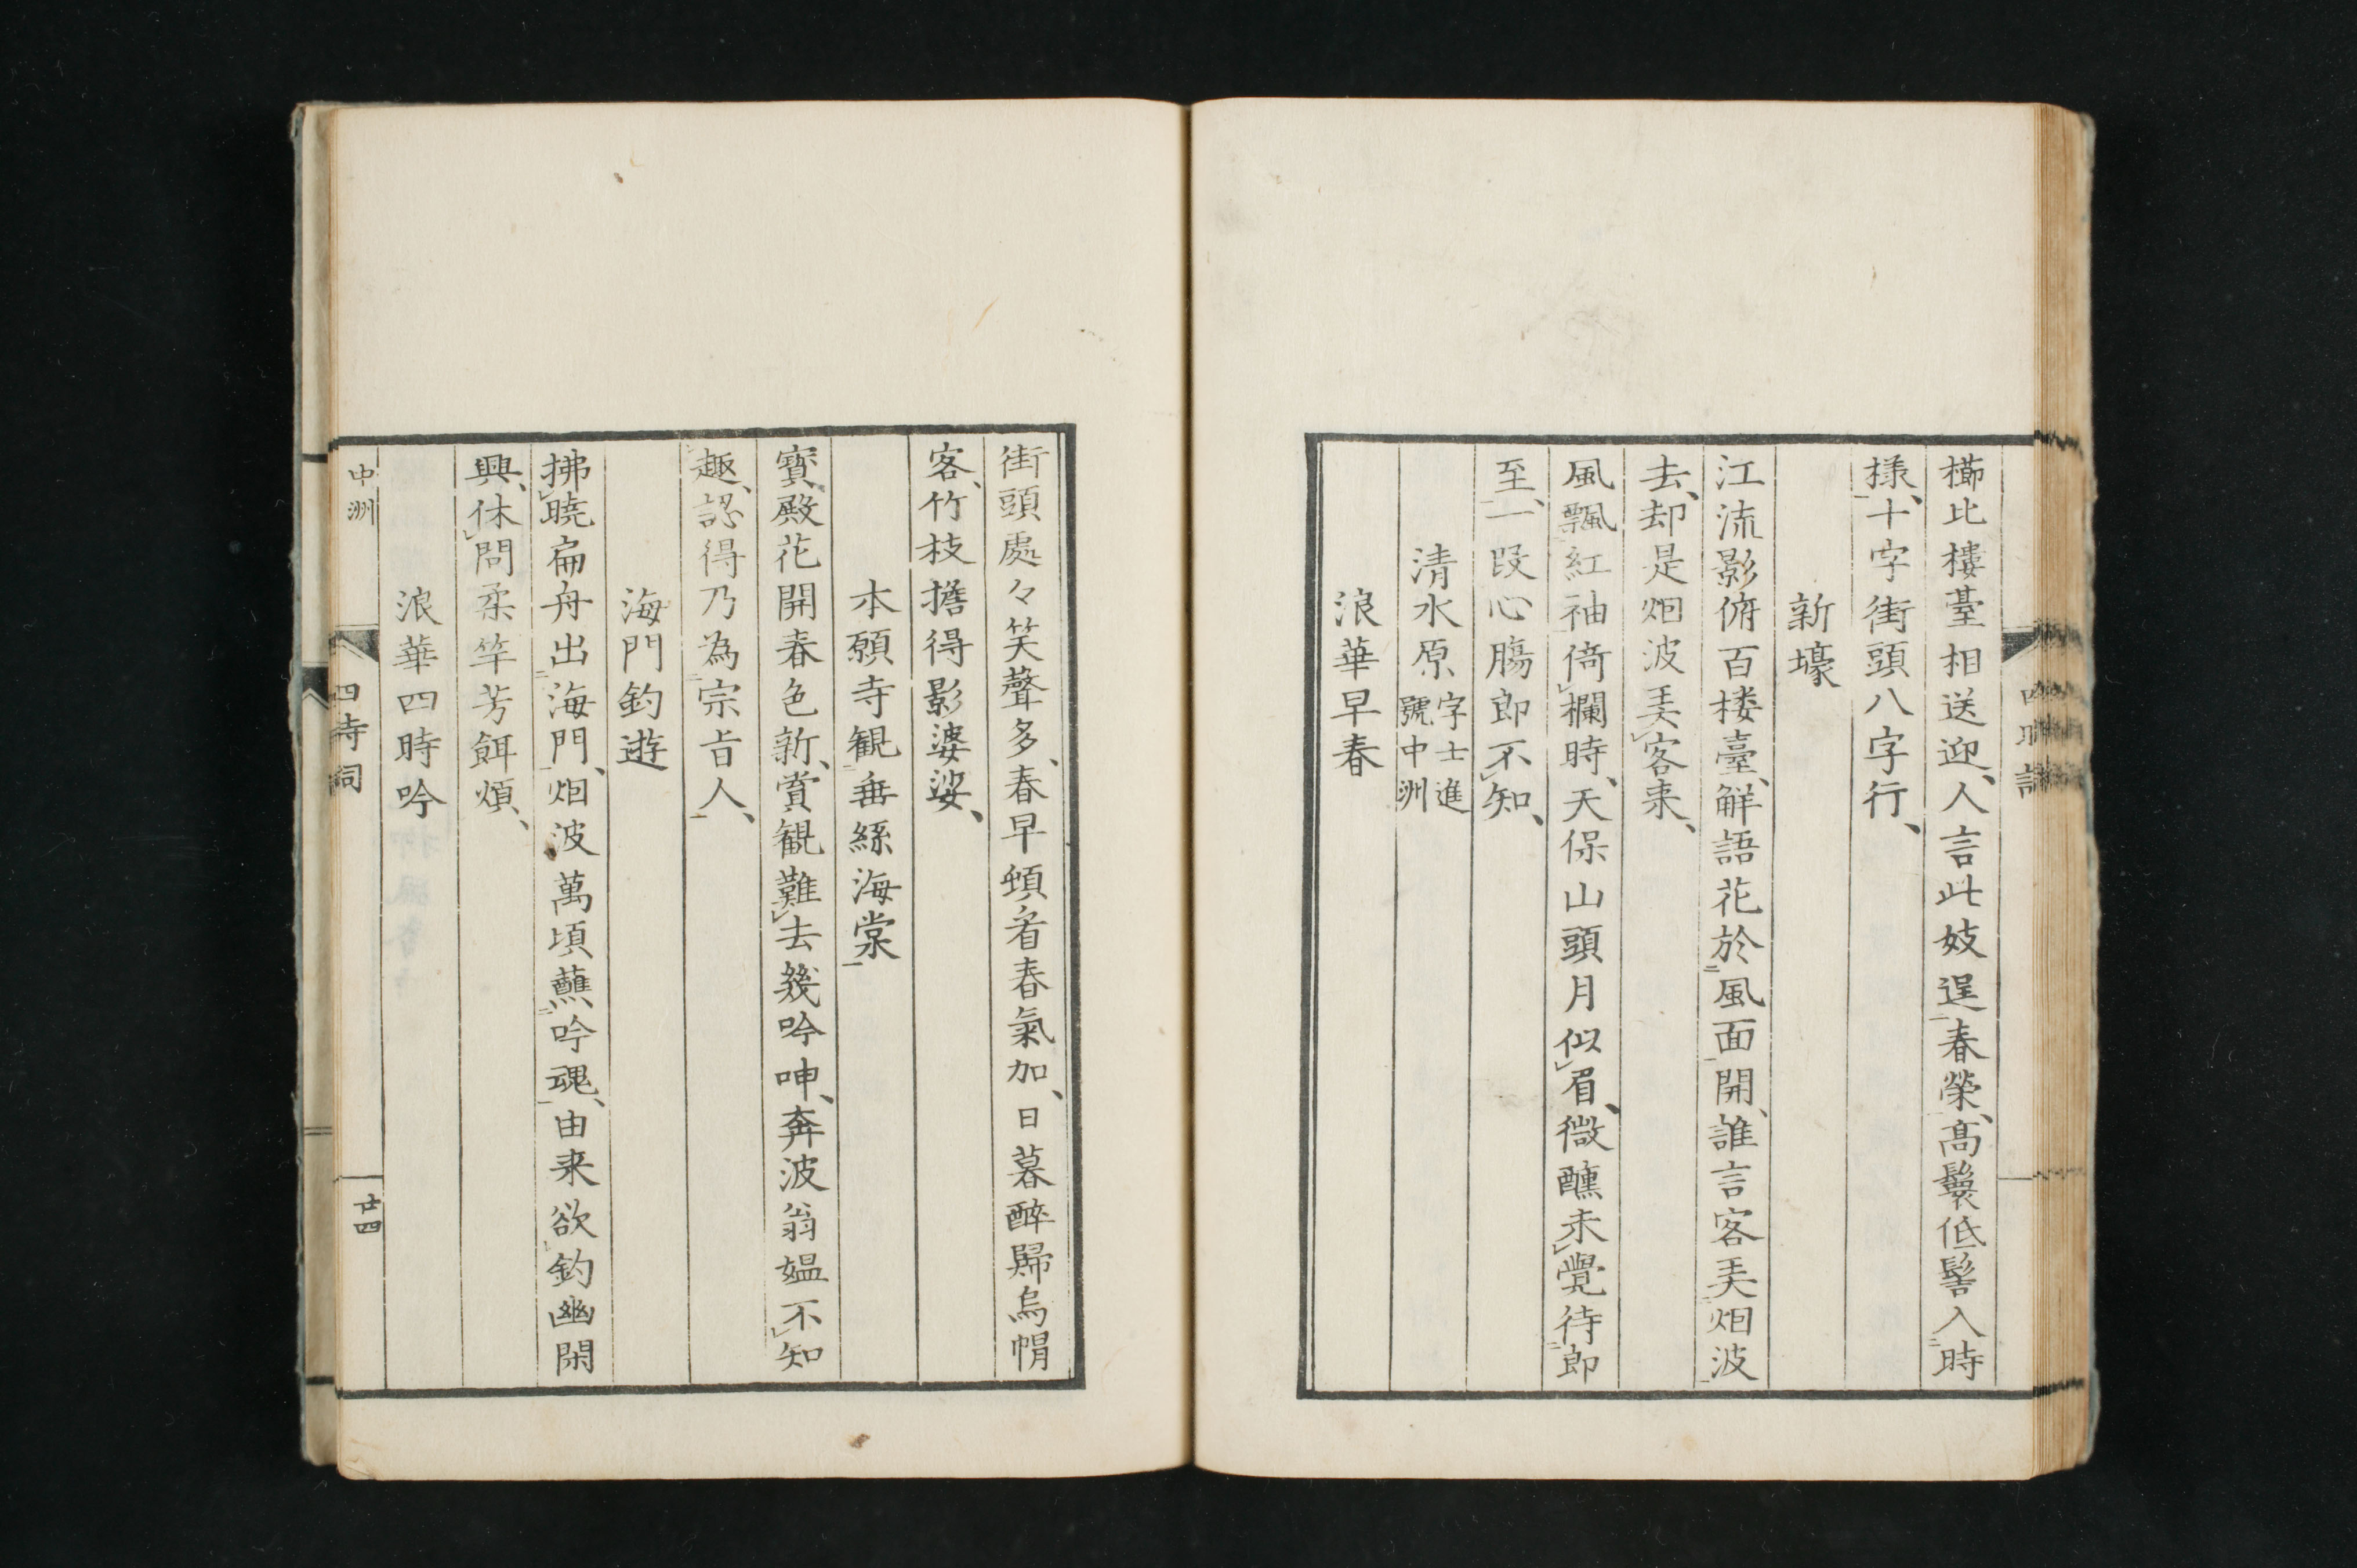 櫛比樓臺相送迎、人言此妓逞春榮、高鬟低髻入時
様、十字街頭八字行、
新壕
江流影俯百楼臺、解語花於風面開、誰言客美烟波
去、却是烟波美客来、
風飄紅袖倚欄時、天保山頭月似眉、微醺未覺待郎
至、一段心腸郎不知、
清水原 字士進 號中洲
浪華早春
街頭處々笑聲多、春早頻看春氣加、日暮醉歸烏帽
客、竹枝擔得影婆娑、
本願寺観垂絲海棠
寳殿花開春色新、賞観難去幾吟呻、奔波翁媼不知
趣、認得乃為宗旨人、
海門釣遊
拂曉扁舟出海門、烟波萬頃蘸吟魂、由来欲釣幽閑
興、休問柔竿芳餌煩、
浪華四時吟
中洲
四時詞
廿四